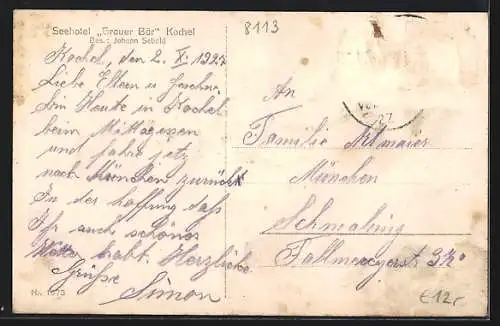 Seehotel „Grauer Bär" Kochel
Bes.: Johann Sebald
8113
Kochel, den 2. X. 1927
Liebe Eltern u Geschw.
bin Heute in Kochel
beim Mittagessen
und fahre jetz
nach München zurück
In der hoffnung daß
Ihr auch schönes
habt. Herzliche
Grüße
Simon
An
Familie Altmaier
München
Schwabing
Fallmerayerstr.
27
€12,-